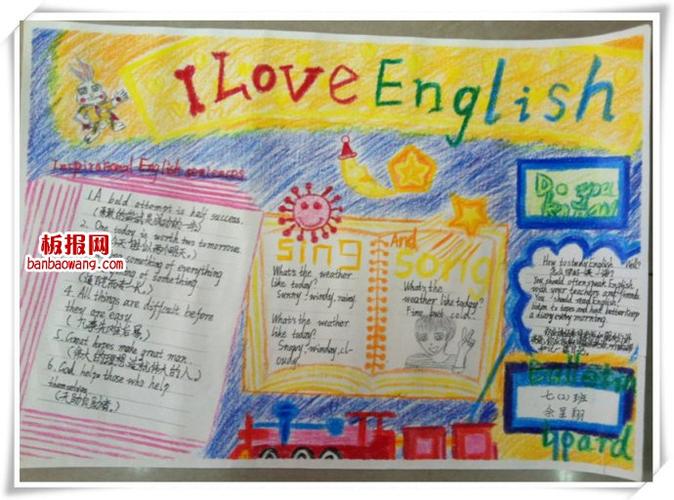 I Love English
Inspirational English sentences
1. A bold attempt is half success.
2. One today is worth two tomorrow.
something of everything
ing of something
4. All things are difficult before
they are easy.
5. Great hopes make great man.
(伟大的理想造就伟大的人。)
6. God helps those who help
themselves
(天助自助者。)
板报网
banbaowang.com
sing
What's the weather
like today?
Sunny! windy, rainy.
What's the weather
like today?
windy, cl-
oudy.
And
song
What's the
weather like today?
Fine, but cold.
Do you
know
How to study English Well?
You should often speak English
with your teachers and friends
You should read English
listen to tapes and had better keep
a diary every morning.
Bulletin
七(2)班
余星翔
board